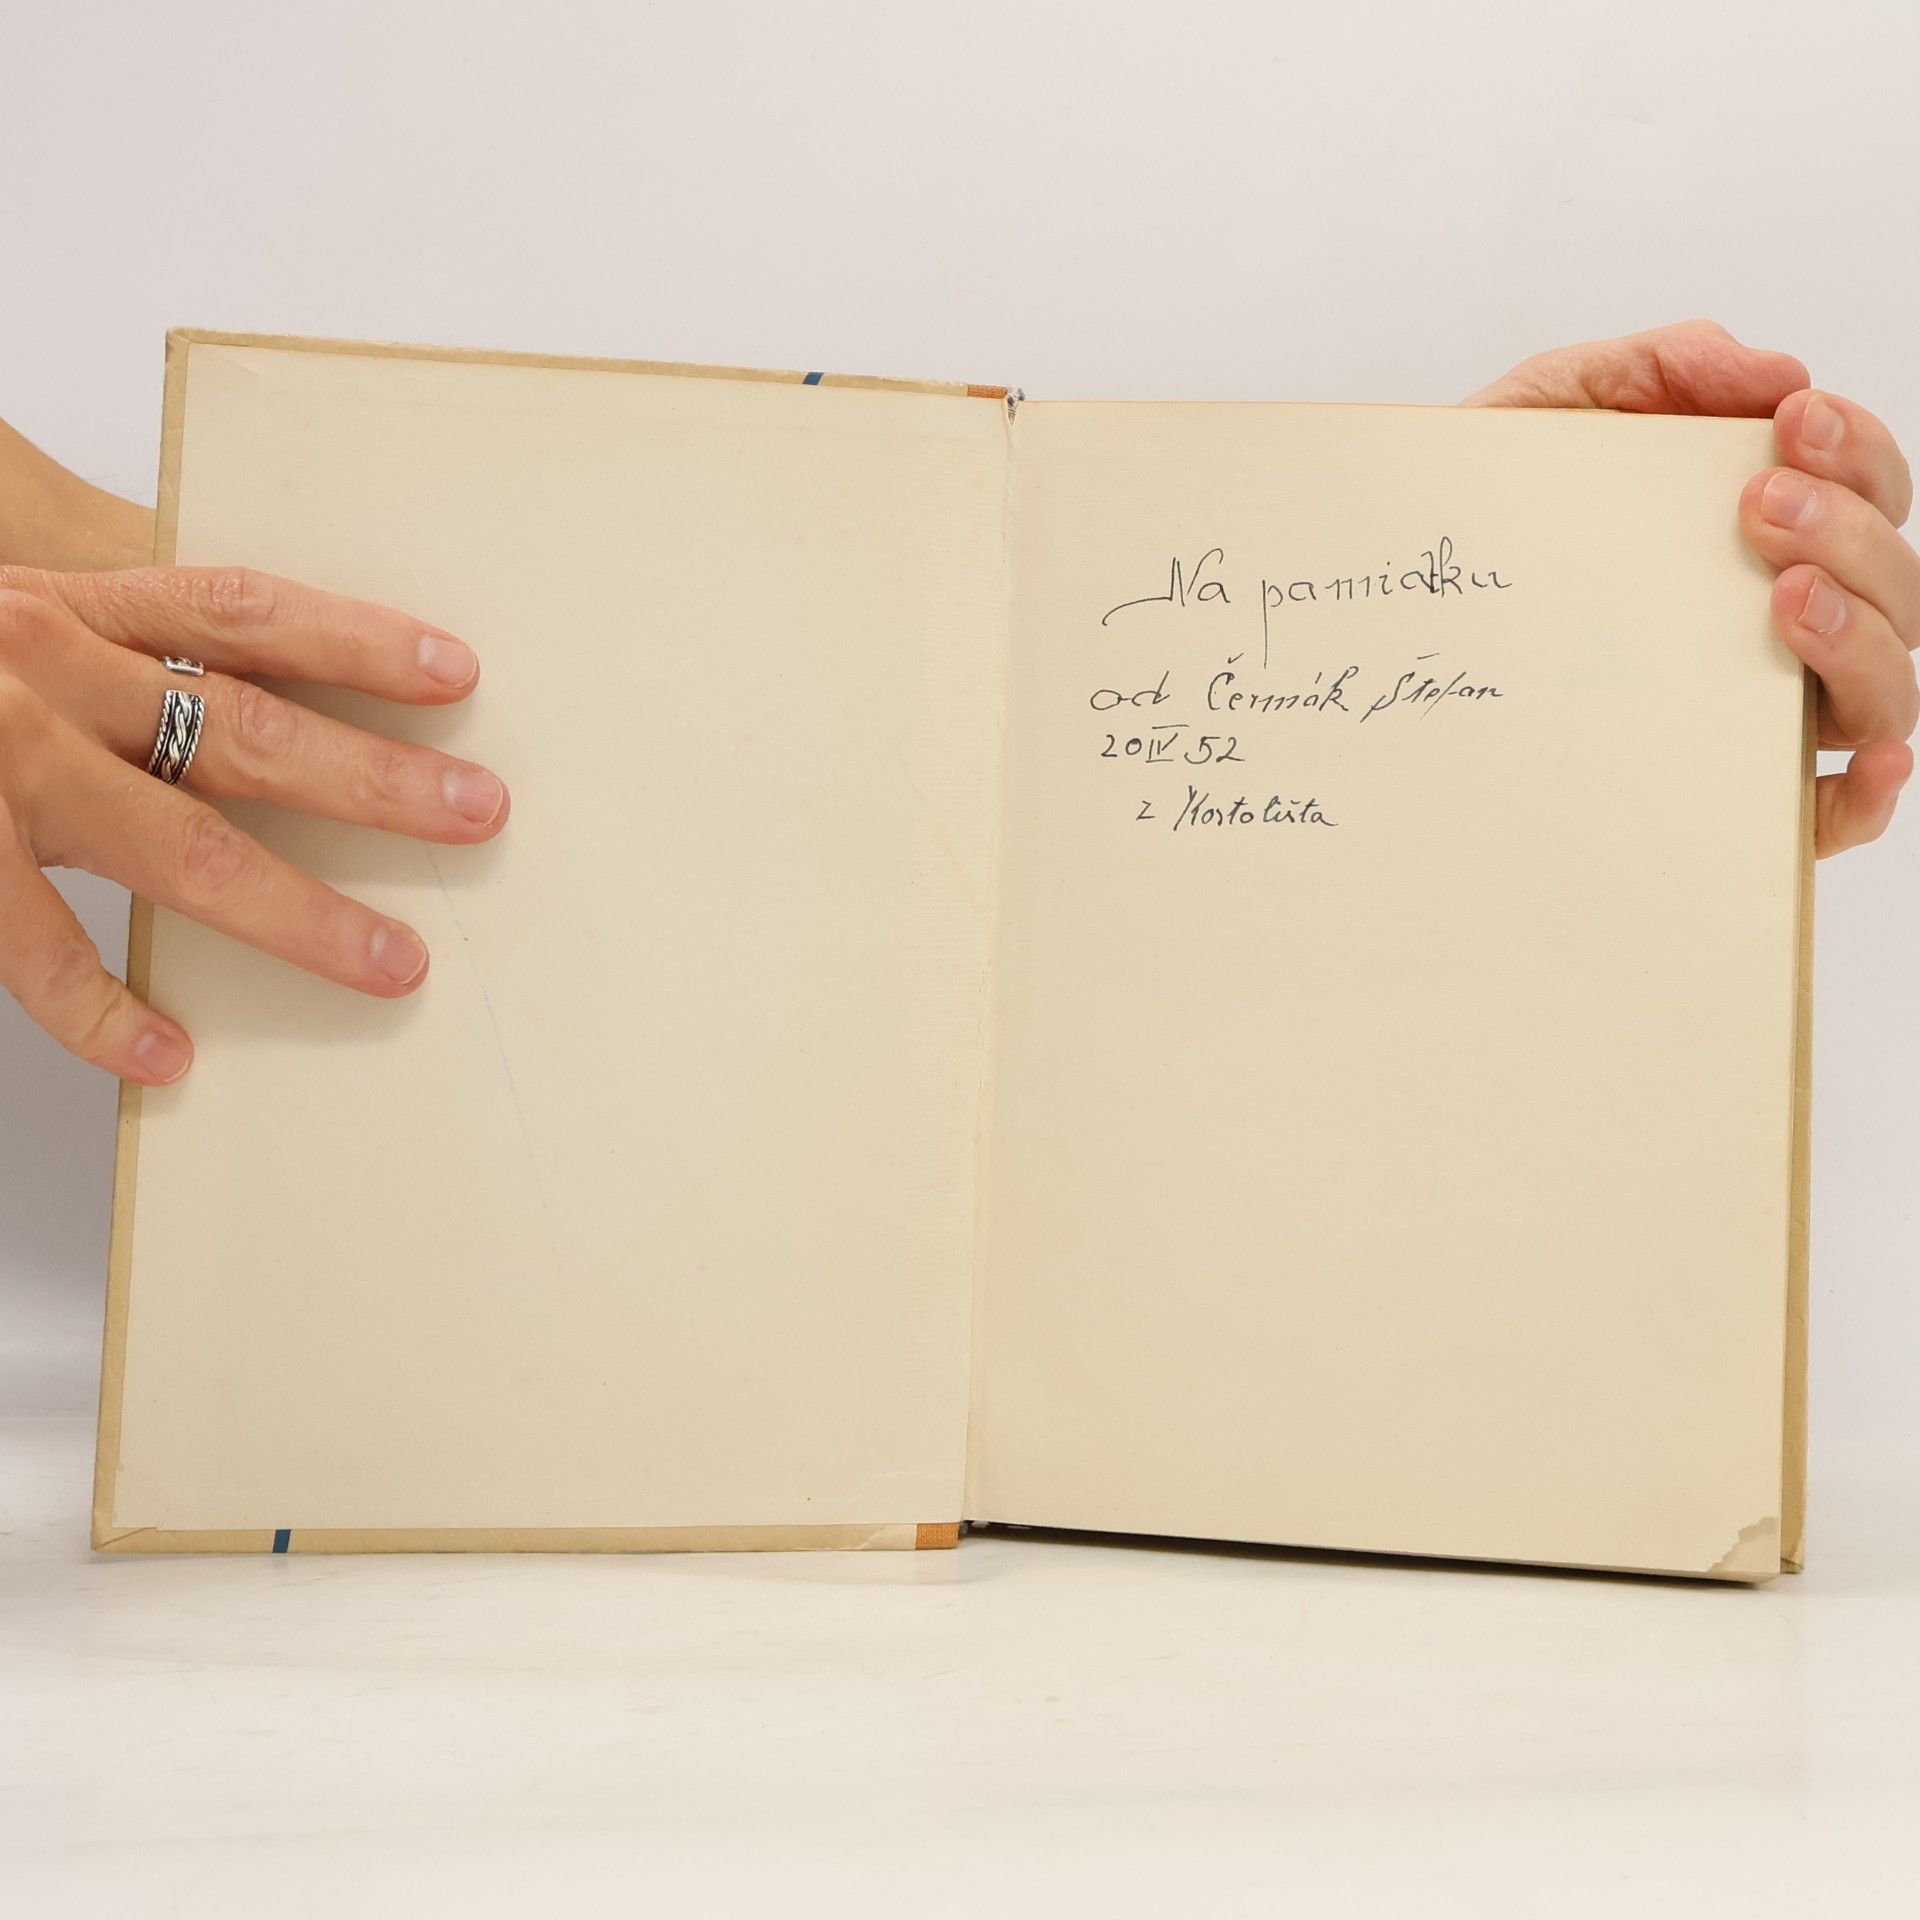 Na pamiatku
od Čermák Štefan
20 IV 52
z Kostolišťa